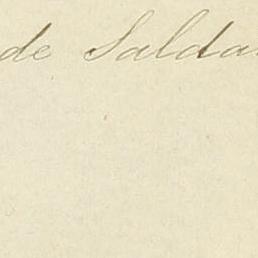 de Salda